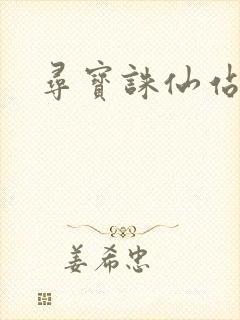 尋寶誅仙佔
姜希忠